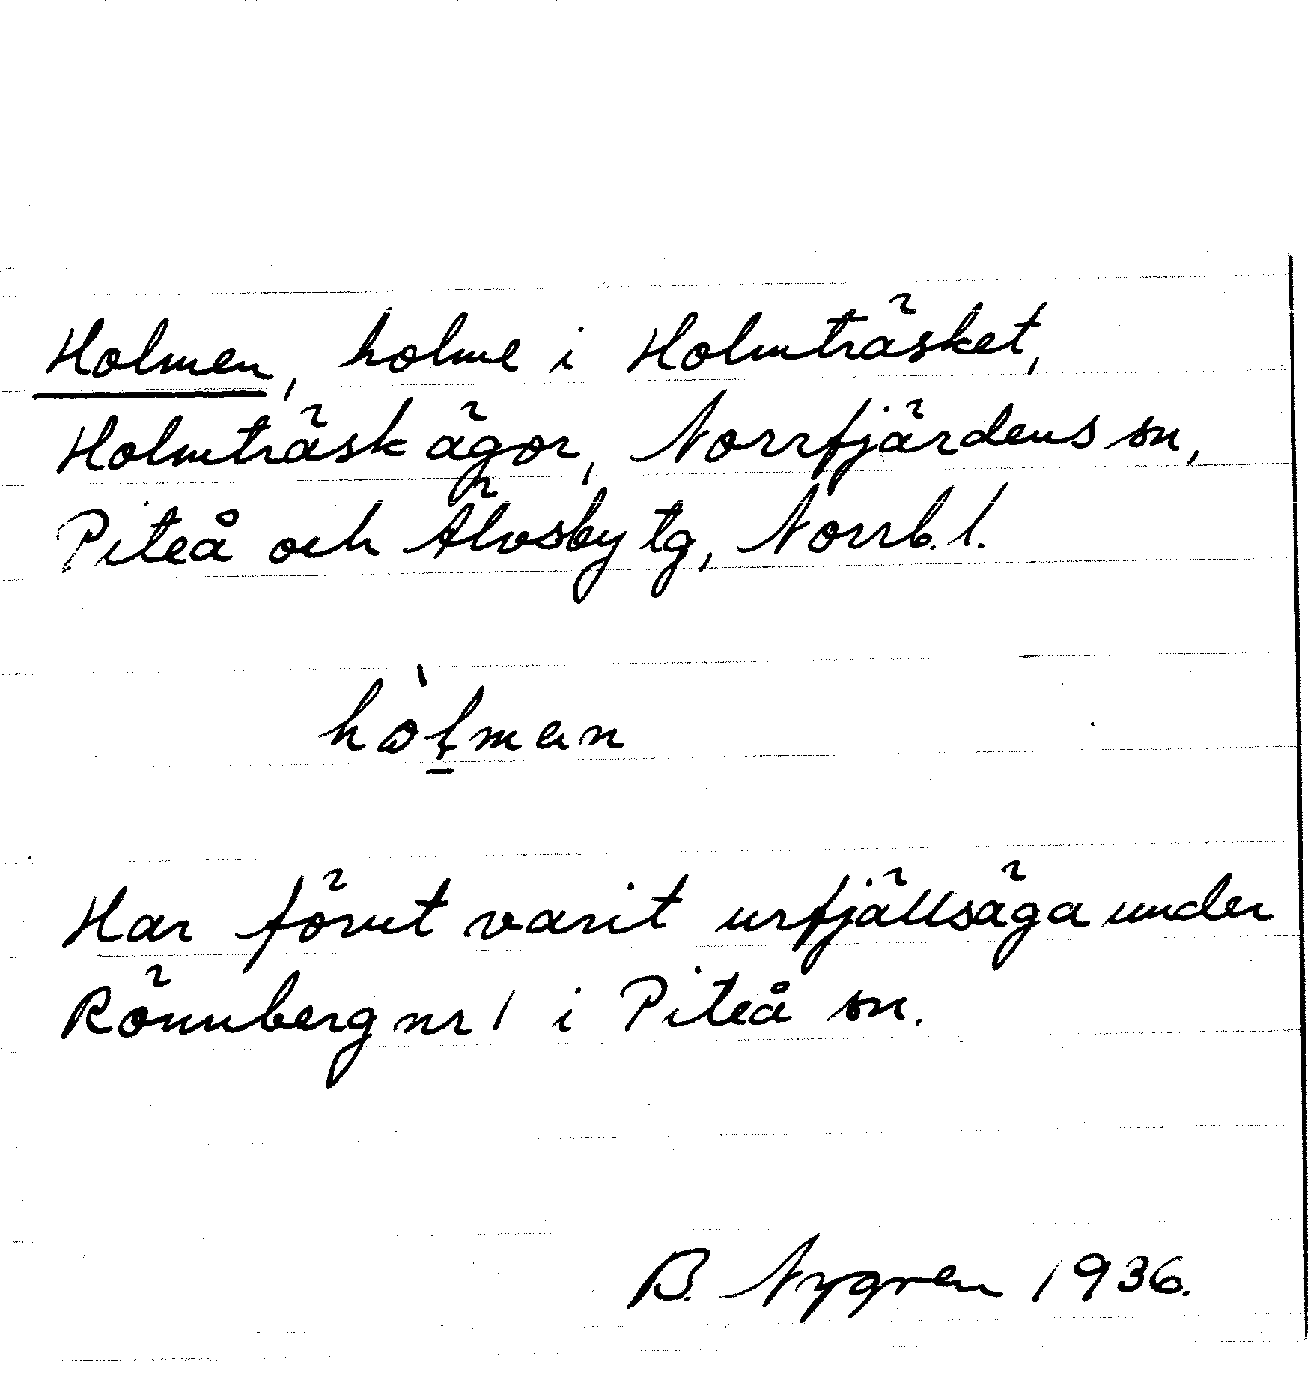 Holmen, holme i Holmträsket,
Holmträsk ägor, Norrfjärdens sn,
Piteå och Älvsby tg, Norrb. l.
hòḷman
Har förut varit urfjällsäga under
Rönnberg nr 1 i Piteå sn.
B. Nygren 1936.